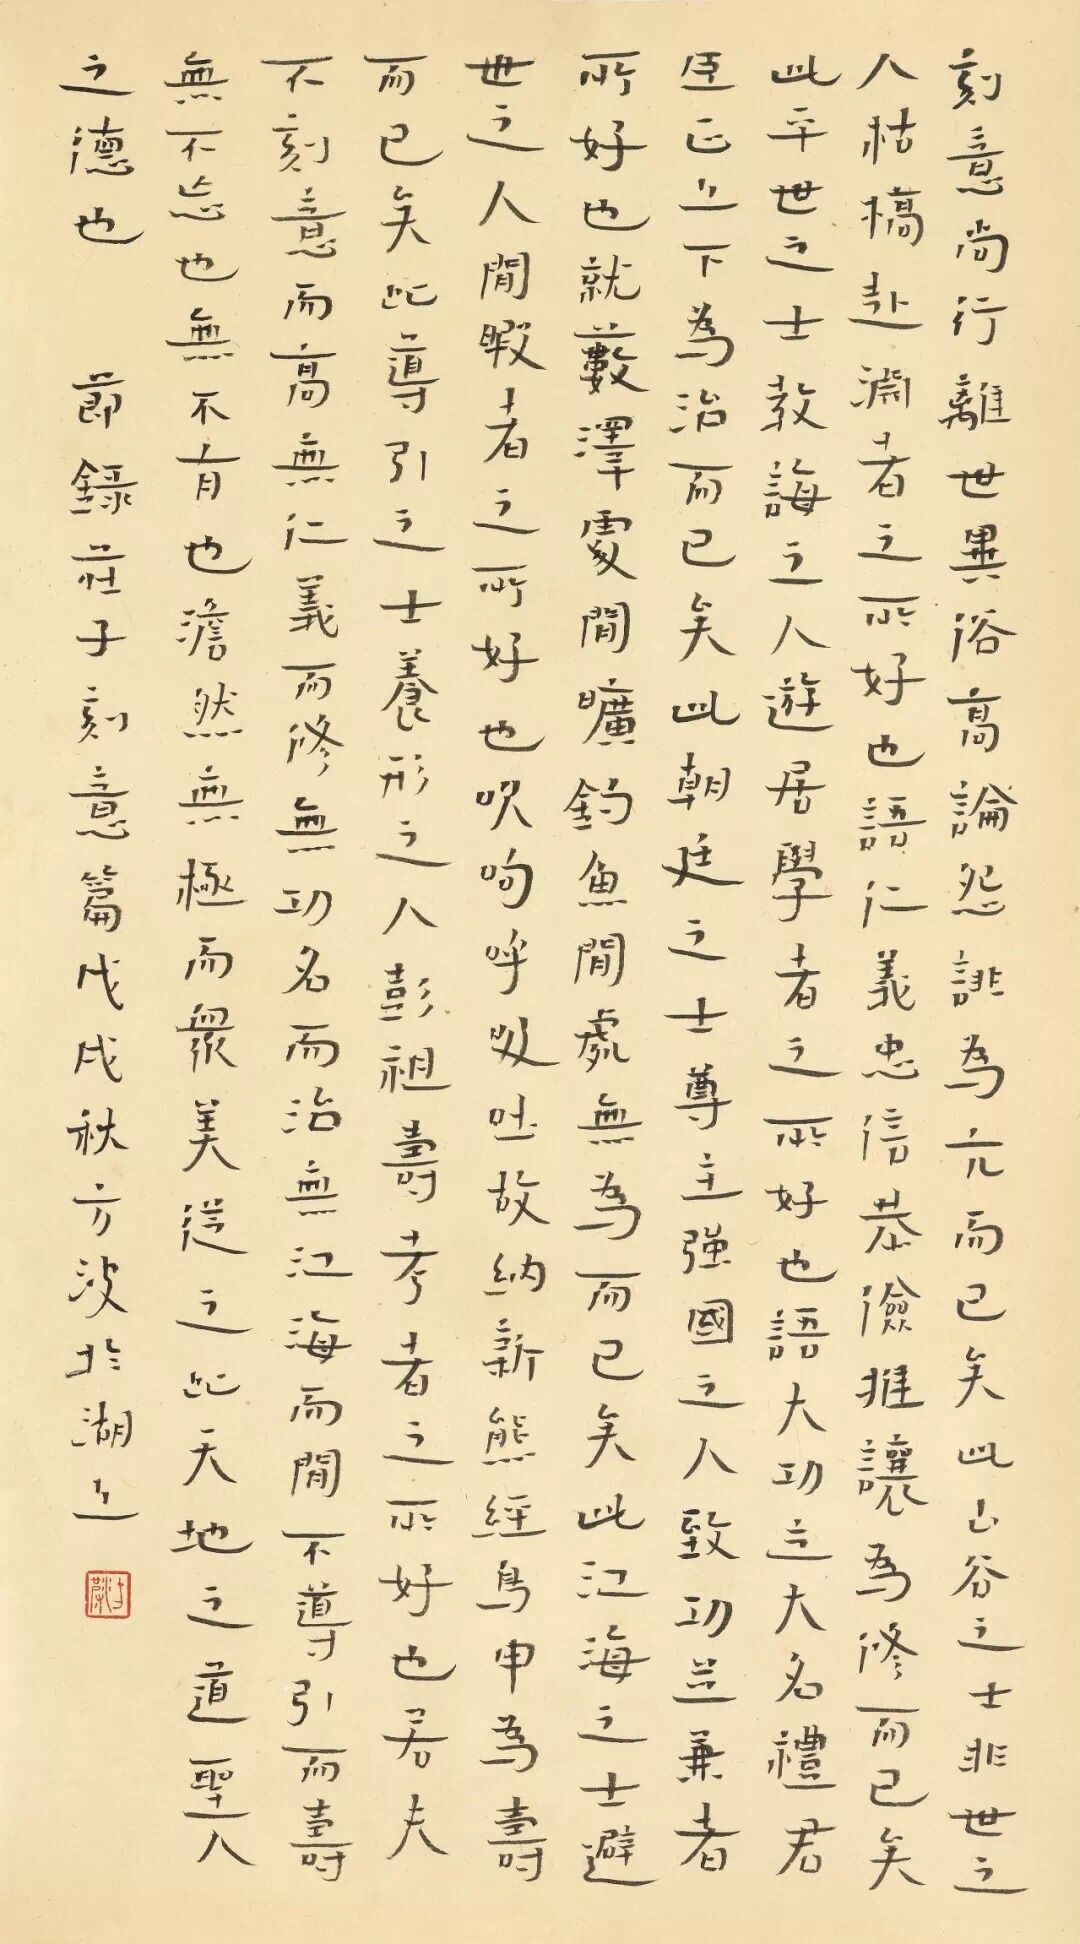 刻意尚行離世異俗高論怨誹為亢而已矣此山谷之士非世之
人枯槁赴淵者之所好也語仁義忠信恭儉推讓為修而已矣
此平世之士教誨之人遊居學者之所好也語大功立大名禮君
臣正上下為治而已矣此朝廷之士尊主強國之人致功並兼者
所好也就藪澤處閒曠釣魚閒處無為而已矣此江海之士避
世之人閒暇者之所好也吹呴呼吸吐故納新熊經鳥申為壽
而已矣此導引之士養形之人彭祖壽考者之所好也若夫
不刻意而高無仁義而修無功名而治無江海而閒不導引而壽
無不忘也無不有也澹然無極而眾美從之此天地之道聖人
之德也 節錄莊子刻意篇戊戌秋方波於湖上